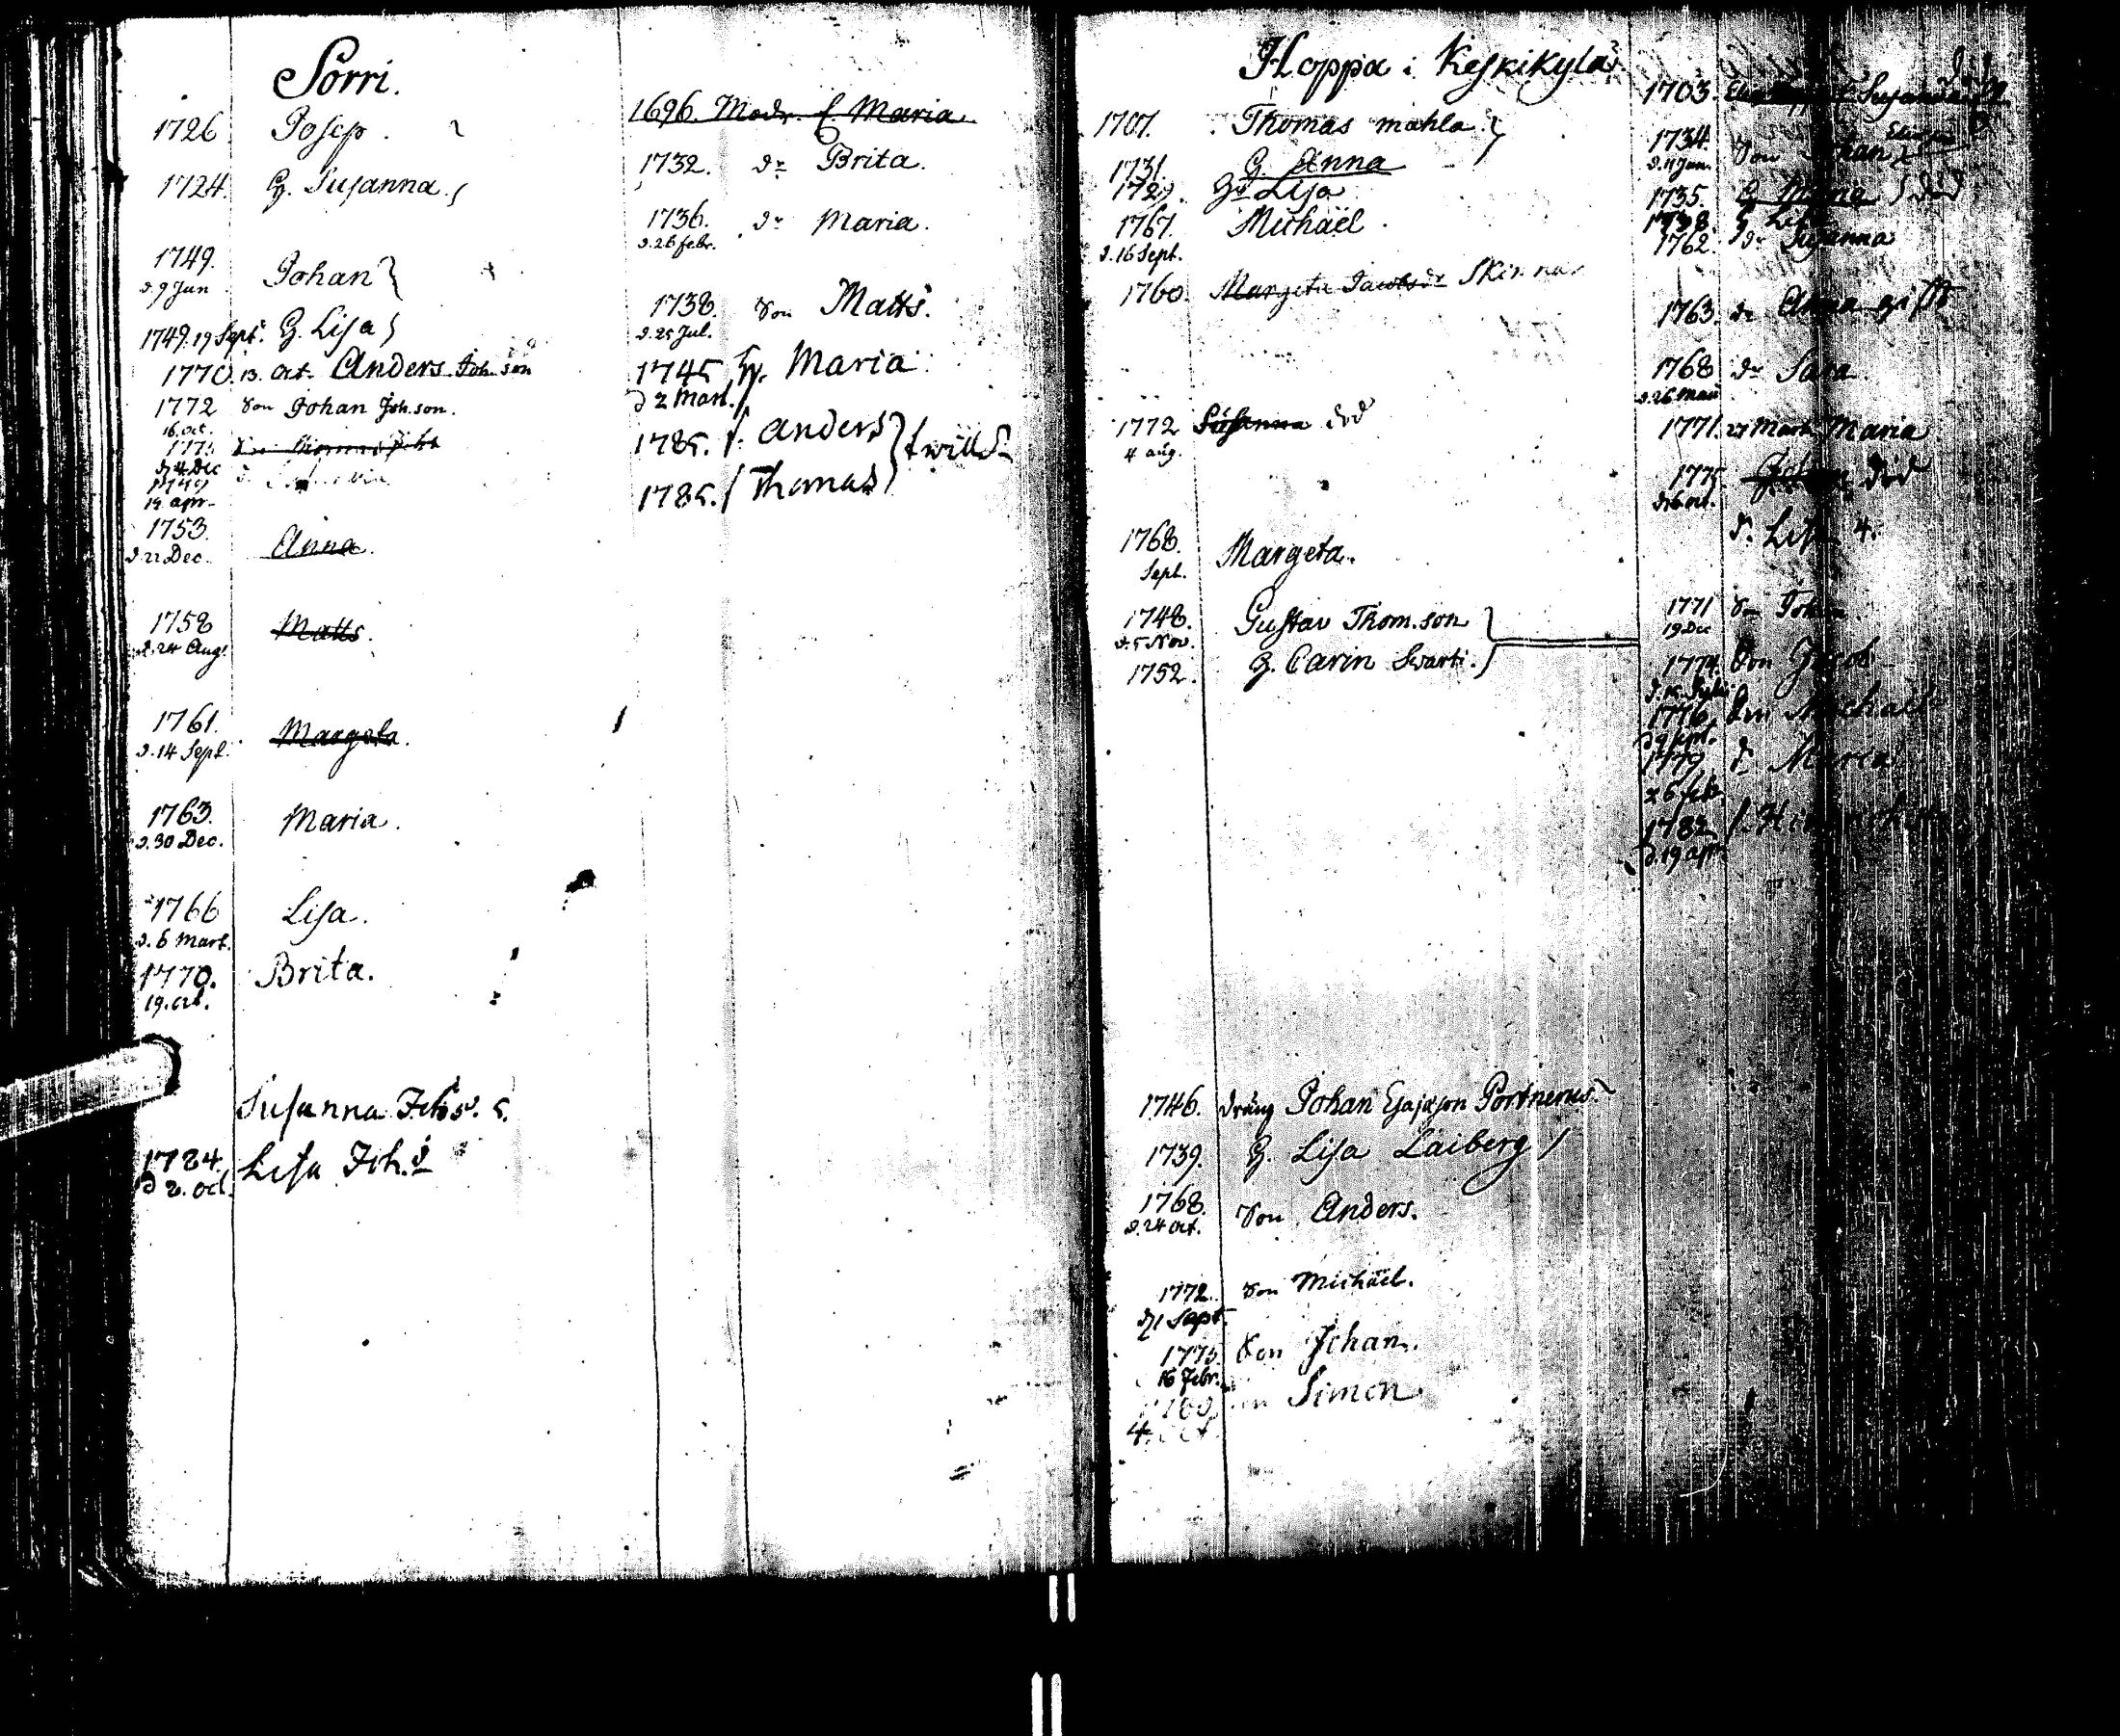 Sorri.
1726. Josep.
1724. H. Susanna.
1749. Johan
d. 9 Jun
1749. 19 Sept. H. Lisa
1770. 13. Oct. Anders Joh.son
1772 Son Johan Joh.son.
16. oct.
d. 4 Dec
12 apr.
1753. Anna.
d. 21 Dec.
1758 Matts.
d. 24 Aug.
1761. Margeta.
d. 14 Sept.
1763. Maria.
d. 30 Dec.
1766 Lisa.
d. 6 Mart.
1770. Brita.
19. oct.
Susanna Joh.
1784. Lisa Joh. d
d 2. oct.
1696 Modr. E. Maria.
1732. dr Brita.
1736. dr Maria.
d. 26 febr.
1738. Son Matts.
d. 25 Jul.
1745 Hr. Maria
d 2 Mart.
1785. f. Anders
1785. f Thomas
Hoppa i Keskikylä
1707. Thomas mahla
1731. H. Anna
1729. Hr Lisa
1767. Michaël.
d. 16 Sept.
1760. Margeta Jacobsdr Skinnar
1772 Susanna död
4 aug.
1768. Margeta.
Sept.
1748. Gustav Thom.son
d. 5 Nov.
1752. H. Carin Svarti.
1746. dräng Johan Esajason Portnerus
1739. H. Lisa Laiberg
1768. Son Anders.
d. 24 oct.
1772. Son Michaël.
d 1 Sept.
1775. Son Johan.
16 Febr.
Simon
1703. Susanna
1734. Son Johan
d. 11 Jan.
1735. H. Maria död
1738. H. Lisa
1762. dr Susanna
1763. dr Anna gift
1768 dr Sara
d. 26 Maii
1771. 27 Mart. Maria
1775. Johan död
dr Lisa 4.
1771 Son Johan
19 Dec
1774. Son Jacob
1776. Son Michaël
1779. dr Maria
26 febr.
1782 f. Hinrich
d. 19 apr.